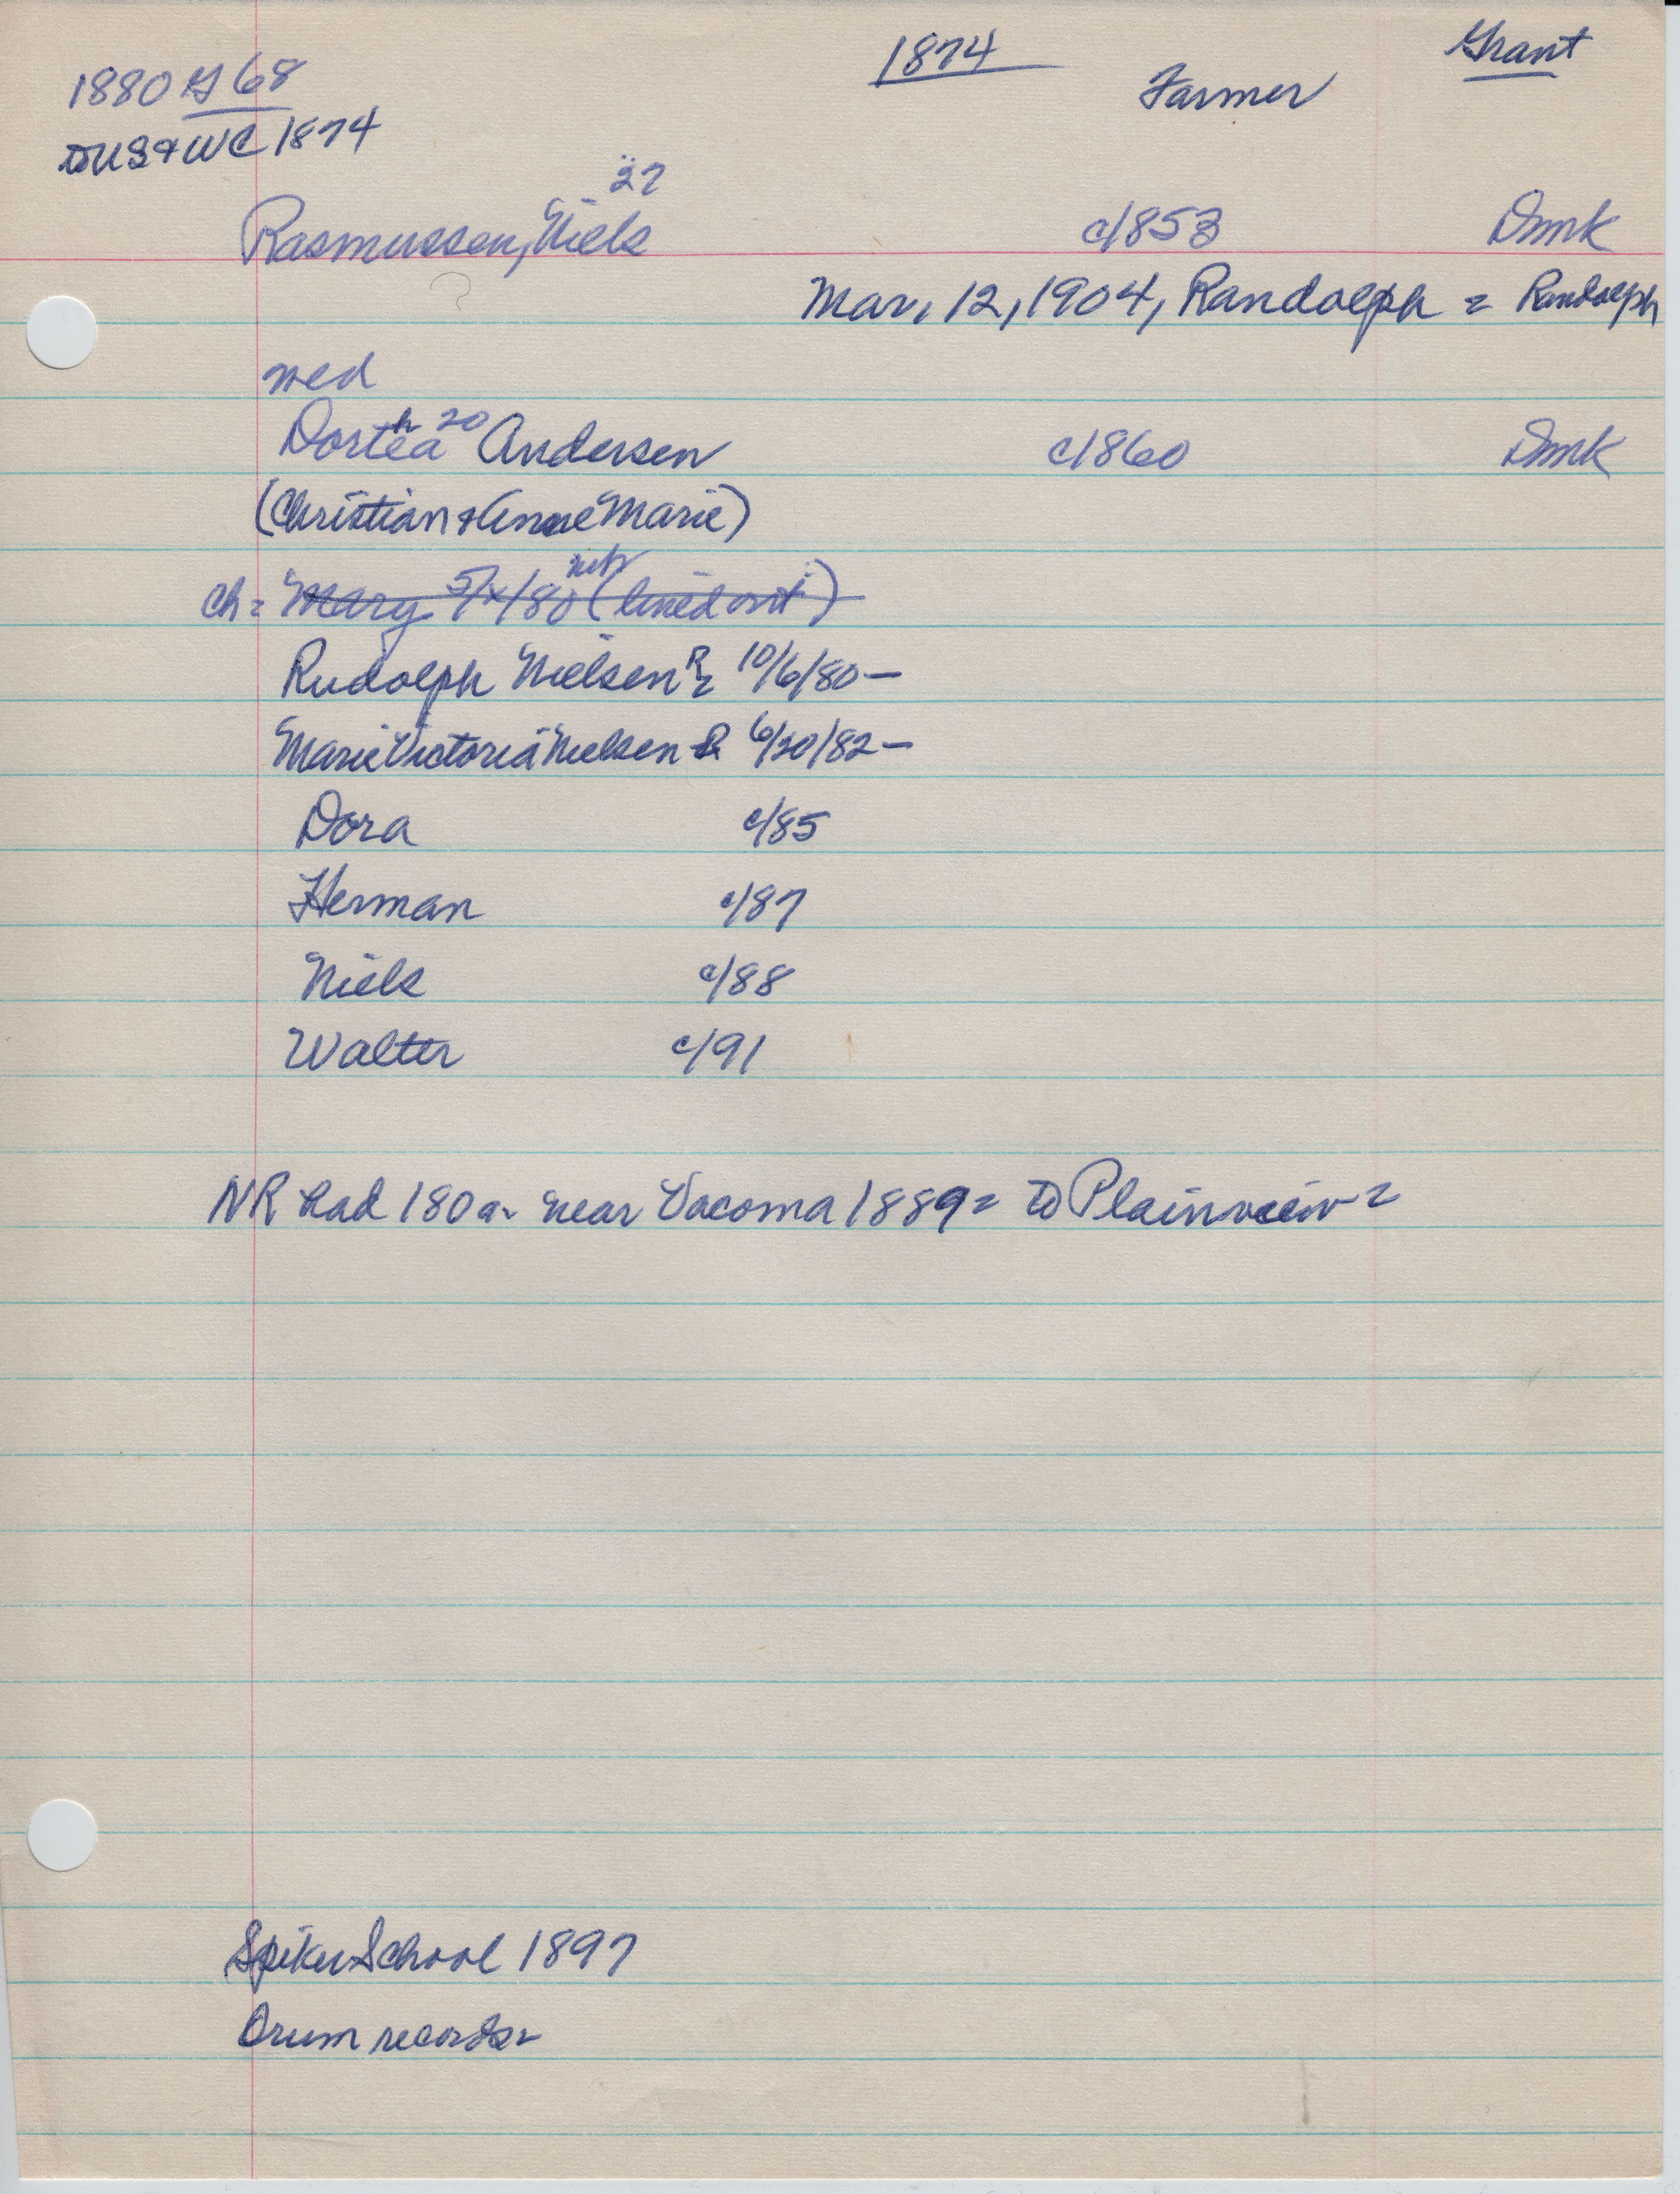 1874 Grant
1880 G 68 Farmer
to US & WC 1874
27
Rasmussen, Niels c/853 Dmk
?
Mar, 12, 1904, Randolph = Randolph
med
Dorthea 20 Andersen c/860 Dmk
(Christian & Anne Marie)
ch = Mary 5/x/80 neb (lined out)
Rudolph Nielsen R 10/6/80 —
Marie Victoria Nielsen R 6/20/82 —
Dora c/85
Herman c/87
Niels c/88
Walter c/91
NR had 180 a. near Vacoma 1889 = to Plainview =
Spiker School 1897
Orum records